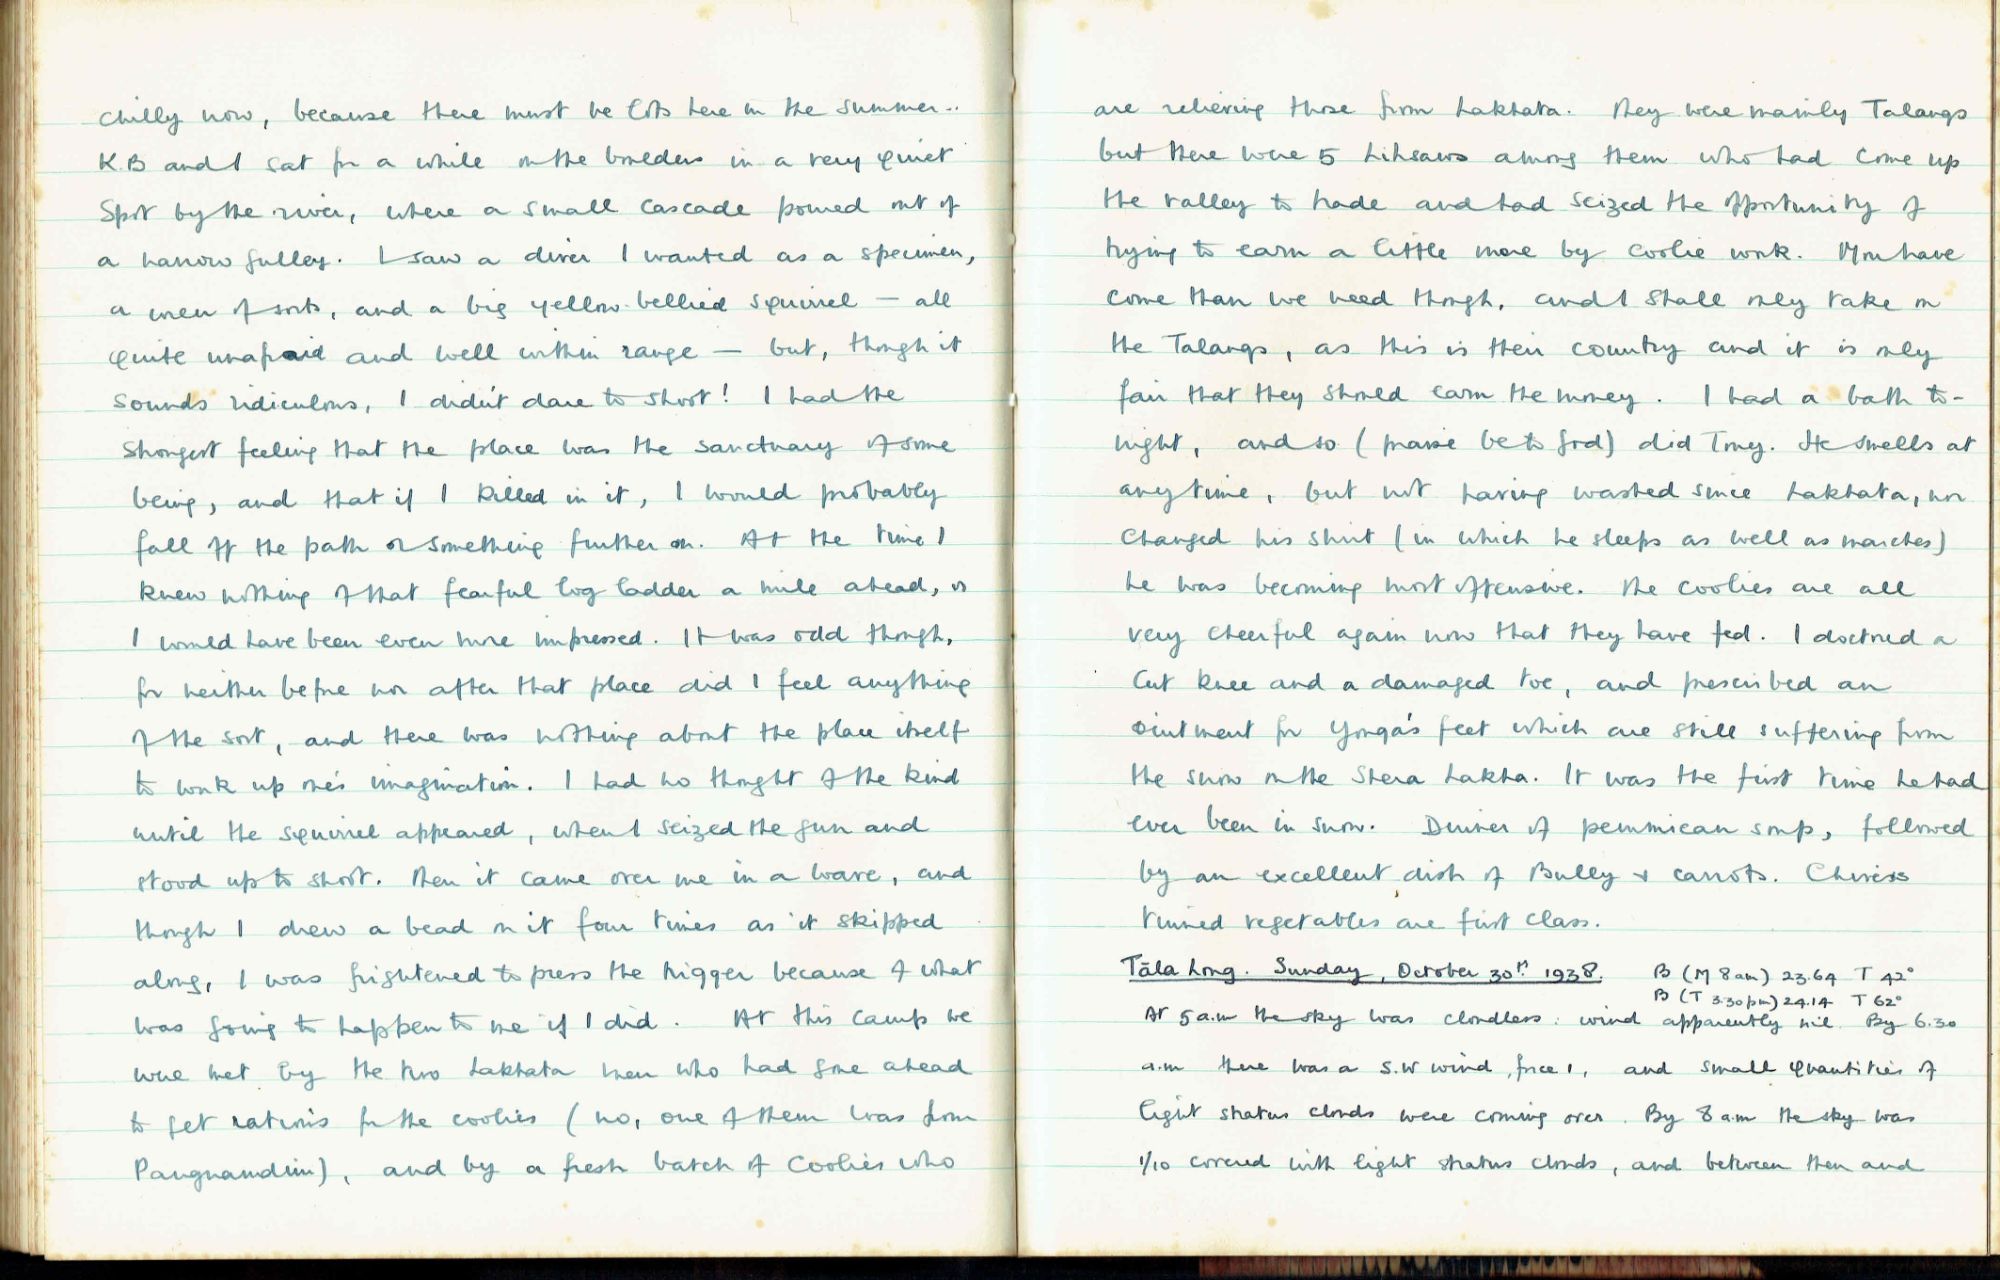 chilly now, because there must be lots here in the summer..
K.B and I sat for a while on the boulders in a very quiet
spot by the river, where a small cascade poured out of
a narrow gulley. I saw a diver I wanted as a specimen,
a wren of sorts, and a big yellow-bellied squirrel — all
quite unafraid and well within range — but, though it
sounds ridiculous, I didn't dare to shoot! I had the
strongest feeling that the place was the sanctuary of some
being, and that if I killed in it, I would probably
fall off the path or something further on. At the time I
knew nothing of that fearful log ladder a mile ahead, or
I would have been even more impressed. It was odd though,
for neither before nor after that place did I feel anything
of the sort, and there was nothing about the place itself
to work up one's imagination. I had no thought of the kind
until the squirrel appeared, when I seized the gun and
stood up to shoot. Then it came over me in a wave, and
though I drew a bead on it four times as it skipped
along, I was frightened to press the trigger because of what
was going to happen to me if I did. At this camp we
were met by the two Lakhata men who had gone ahead
to get rations for the coolies (no, one of them was from
Pangnamdim), and by a fresh batch of coolies who
are relieving those from Lakhata. They were mainly Talangs
but there were 5 Lihsaws among them who had come up
the valley to trade and had seized the opportunity of
trying to earn a little more by coolie work. More have
come than we need though, and I shall only take on
the Talangs, as this is their country and it is only
fair that they should earn the money. I had a bath to-
night, and so (praise be to God) did Tony. He smells at
any time, but not having washed since Lakhata, nor
changed his shirt (in which he sleeps as well as marches)
he was becoming most offensive. The coolies are all
very cheerful again now that they have fed. I doctored a
cut knee and a damaged toe, and prescribed an
ointment for Yonga's feet which are still suffering from
the snow on the Shera Lakha. It was the first time he had
ever been in snow. Dinner of pemmican soup, followed
by an excellent dish of Bully & carrots. Chivers
tinned vegetables are first class.
Tāla Long. Sunday, October 30th 1938. B (M 8am) 23.64 T 42°
B (T 3.30pm) 24.14 T 62°
At 5 a.m the sky was cloudless: wind apparently nil. By 6.30
a.m there was a S.W wind, force 1, and small quantities of
light stratus clouds were coming over. By 8 a.m the sky was
1/10 covered with light stratus clouds, and between then and